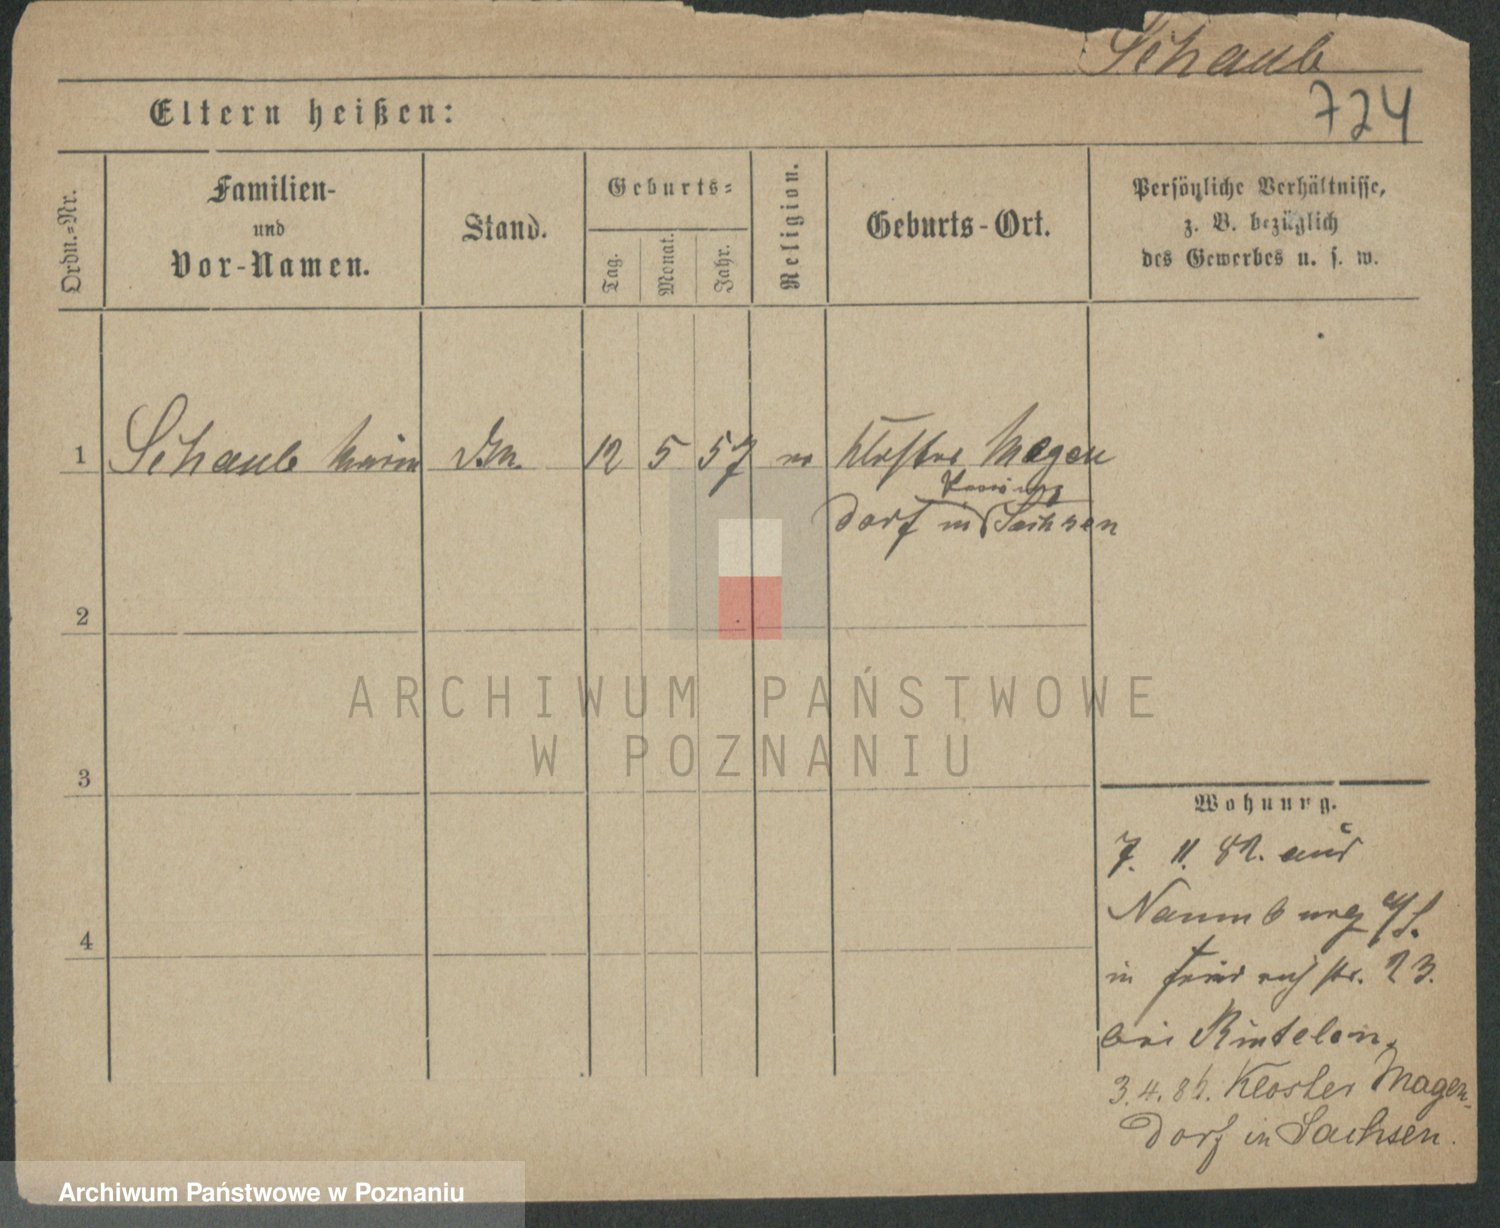 Schaub
724
Eltern heißen:
Ordn.=Nr.
Familien-
und
Vor-Namen.
Stand.
Geburts=
Tag.
Monat.
Jahr.
Religion.
Geburts-Ort.
Persönliche Verhältnisse,
z. B. bezüglich
des Gewerbes u. s. w.
1 Schaub 12 5 57 ev Kloster Magen
Provinz
dorf in Sachsen
2
3
4
ARCHIWUM PAŃSTWOWE
W POZNANIU
Wohnung.
7. 11. 82. aus
Naumburg a/S.
in Friedrichstr. 23.
bei Rintelen.
3.4.85. Kloster Magen-
dorf in Sachsen.
Archiwum Państwowe w Poznaniu